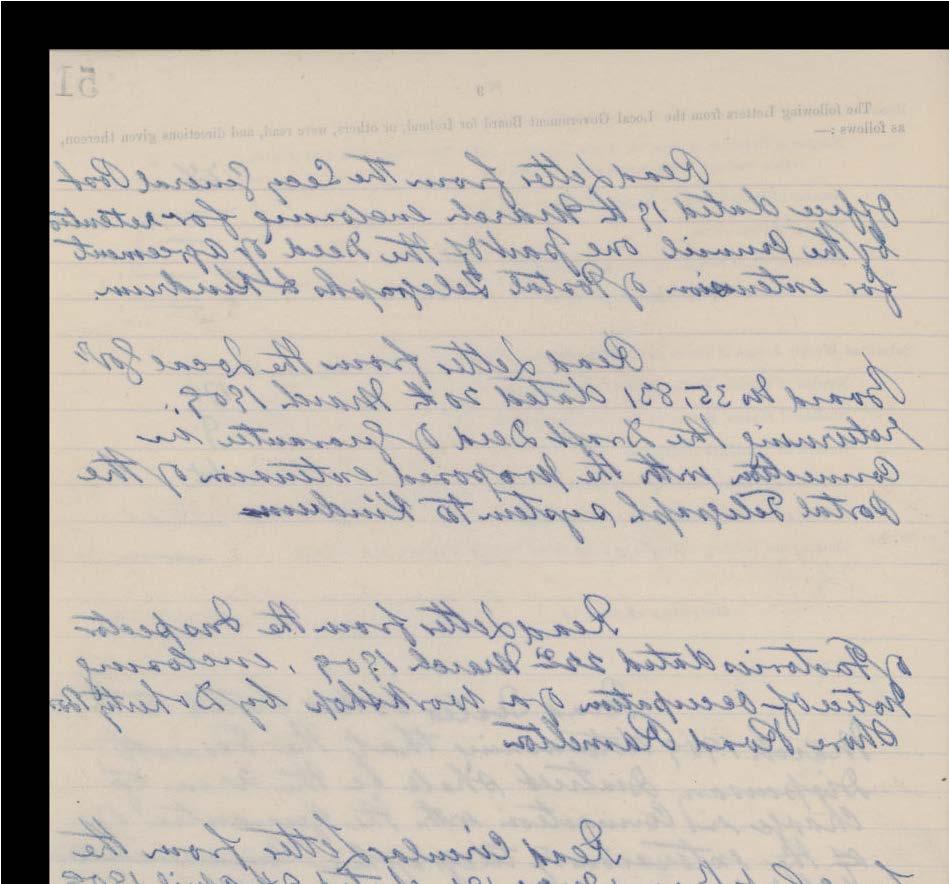 51
9
The following Letters from the Local Government Board for Ireland, or others, were read, and directions given thereon,
as follows :—
Read Letter from the Secy General Post
Office dated 19th March enclosing for retention
by the Council one part of the Deed of Agreement
for extension of Postal Telegraphs to Kindrum.
Read Letter from the Local Govt
Board No 35,831 dated 20th March 1909.
returning the Draft Deed of Guarantee in
Connection with the proposed extension of the
Postal Telegraph system to Kindrum
Read Letter from the Inspector
of Factories dated 22nd March 1909, enclosing
Notice of Occupation of a Workshop by Doherty Bros
Shore Road Ramelton
Read Circular Letter from the